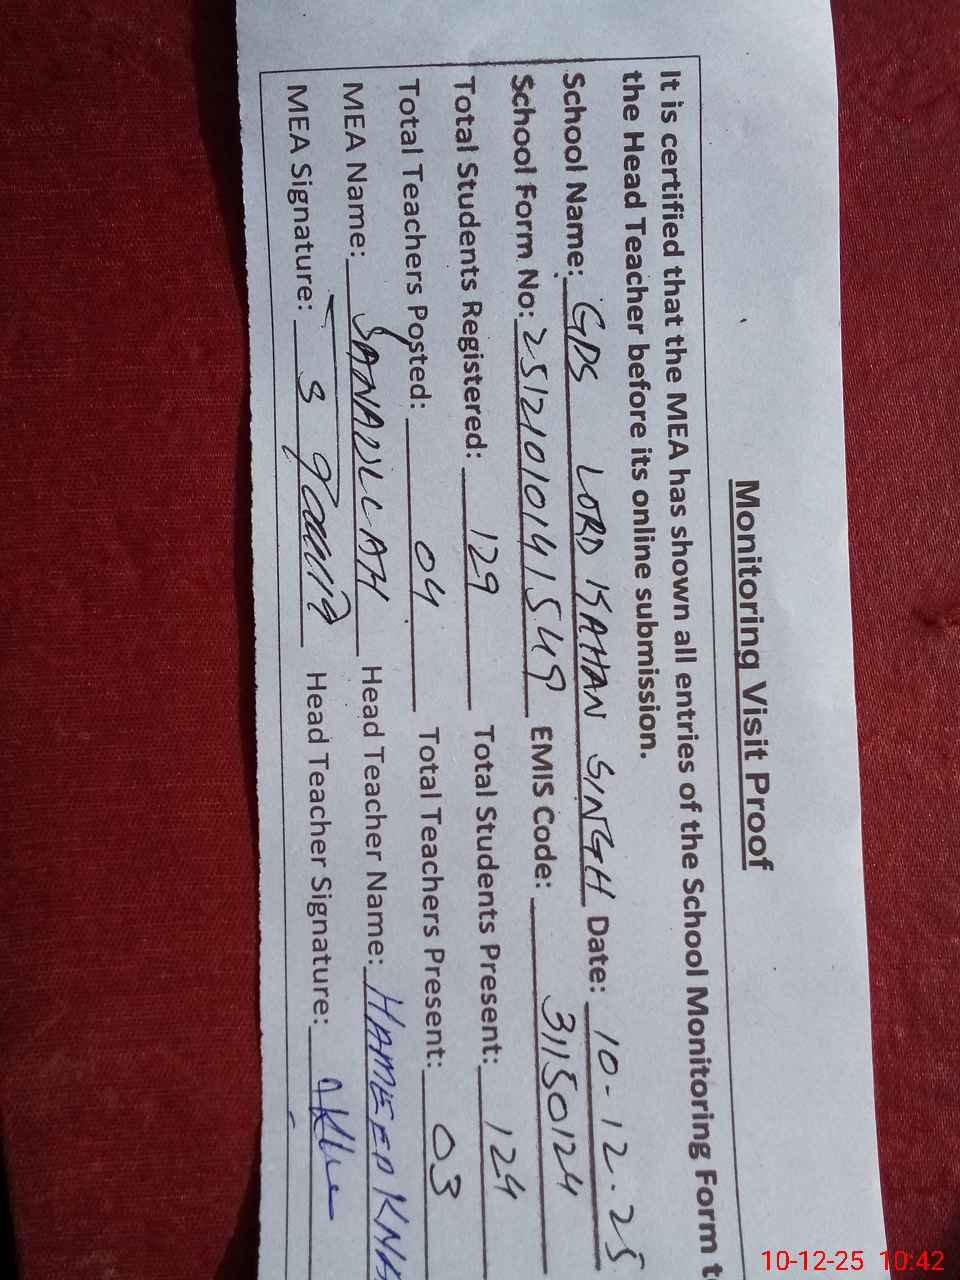 Monitoring Visit Proof
It is certified that the MEA has shown all entries of the School Monitoring Form t
the Head Teacher before its online submission.
School Name: GPS LORD KAHAN SINGH Date: 10-12-25
School Form No: 25121010141549 EMIS Code: 31150124
Total Students Registered: 129 Total Students Present: 124
Total Teachers Posted: 04 Total Teachers Present: 03
MEA Name: SANAULLAH Head Teacher Name: HAMEED KHA
MEA Signature: Head Teacher Signature:
10-12-25 10:42